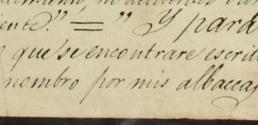 ente." = " Y para
que se encontrare escrit
nombro por mis albaceas